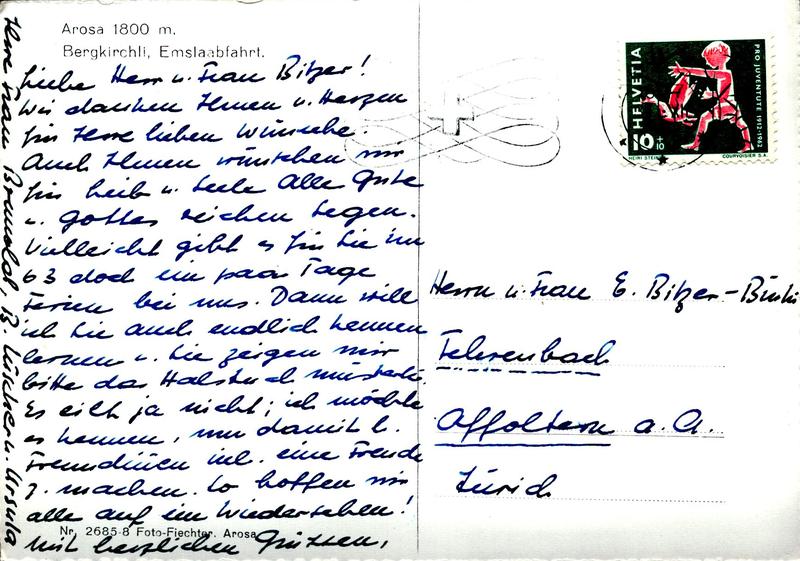 Arosa 1800 m.
Bergkirchli, Emslaabfahrt.
Liebe Herr u. Frau Bitzer!
Wir danken Ihnen v. Herzen
für Ihre lieben Wünsche.
Auch Ihnen wünschen wir
für Leib u. Seele alle Gute
u. Gottes reichen Segen.
Vielleicht gibt es für Sie im
63 doch ein paar Tage
Ferien bei uns. Dann will
ich Sie auch endlich kennen
lernen u. Sie zeigen mir
bitte das Halstuch musterli.
Es eilt ja nicht; ich möchte
es kennen, um damit l.
Freundinen inl. eine Freude
z. machen. So hoffen wir
alle auf ein Wiedersehen!
Nr. 2685-8 Foto-Fiechter, Arosa
Mit herzlichen Grüssen,
Ihre Frau B. u. Ursula
HELVETIA
PRO JUVENTUTE 1912-1962
10+10
COURVOISIER S.A.
Herrn u. Frau E. Bitzer-
Fehrenbach
Affoltern a. A.
Zürich